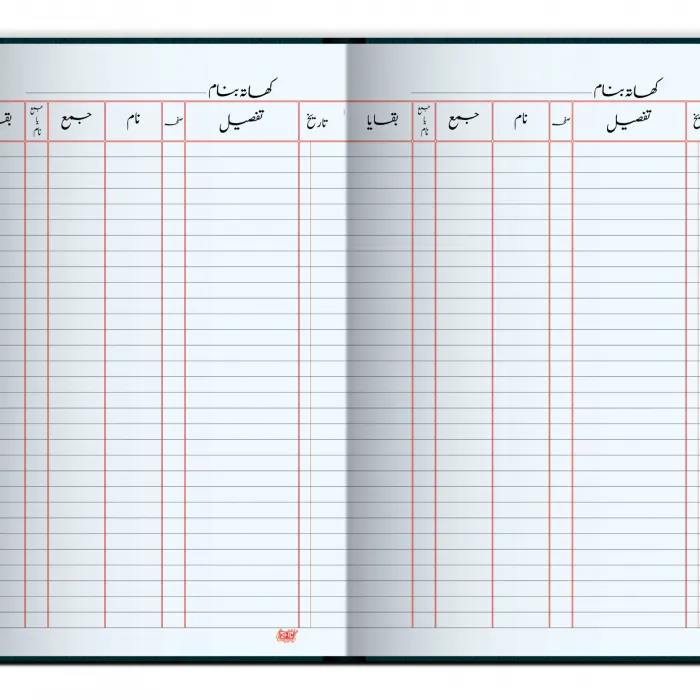 کھاتہ بنام
تاریخ تفصیل صفحہ نام جمع جمع یا نام بقایا
کھاتہ بنام
تفصیل صفحہ نام جمع جمع یا نام